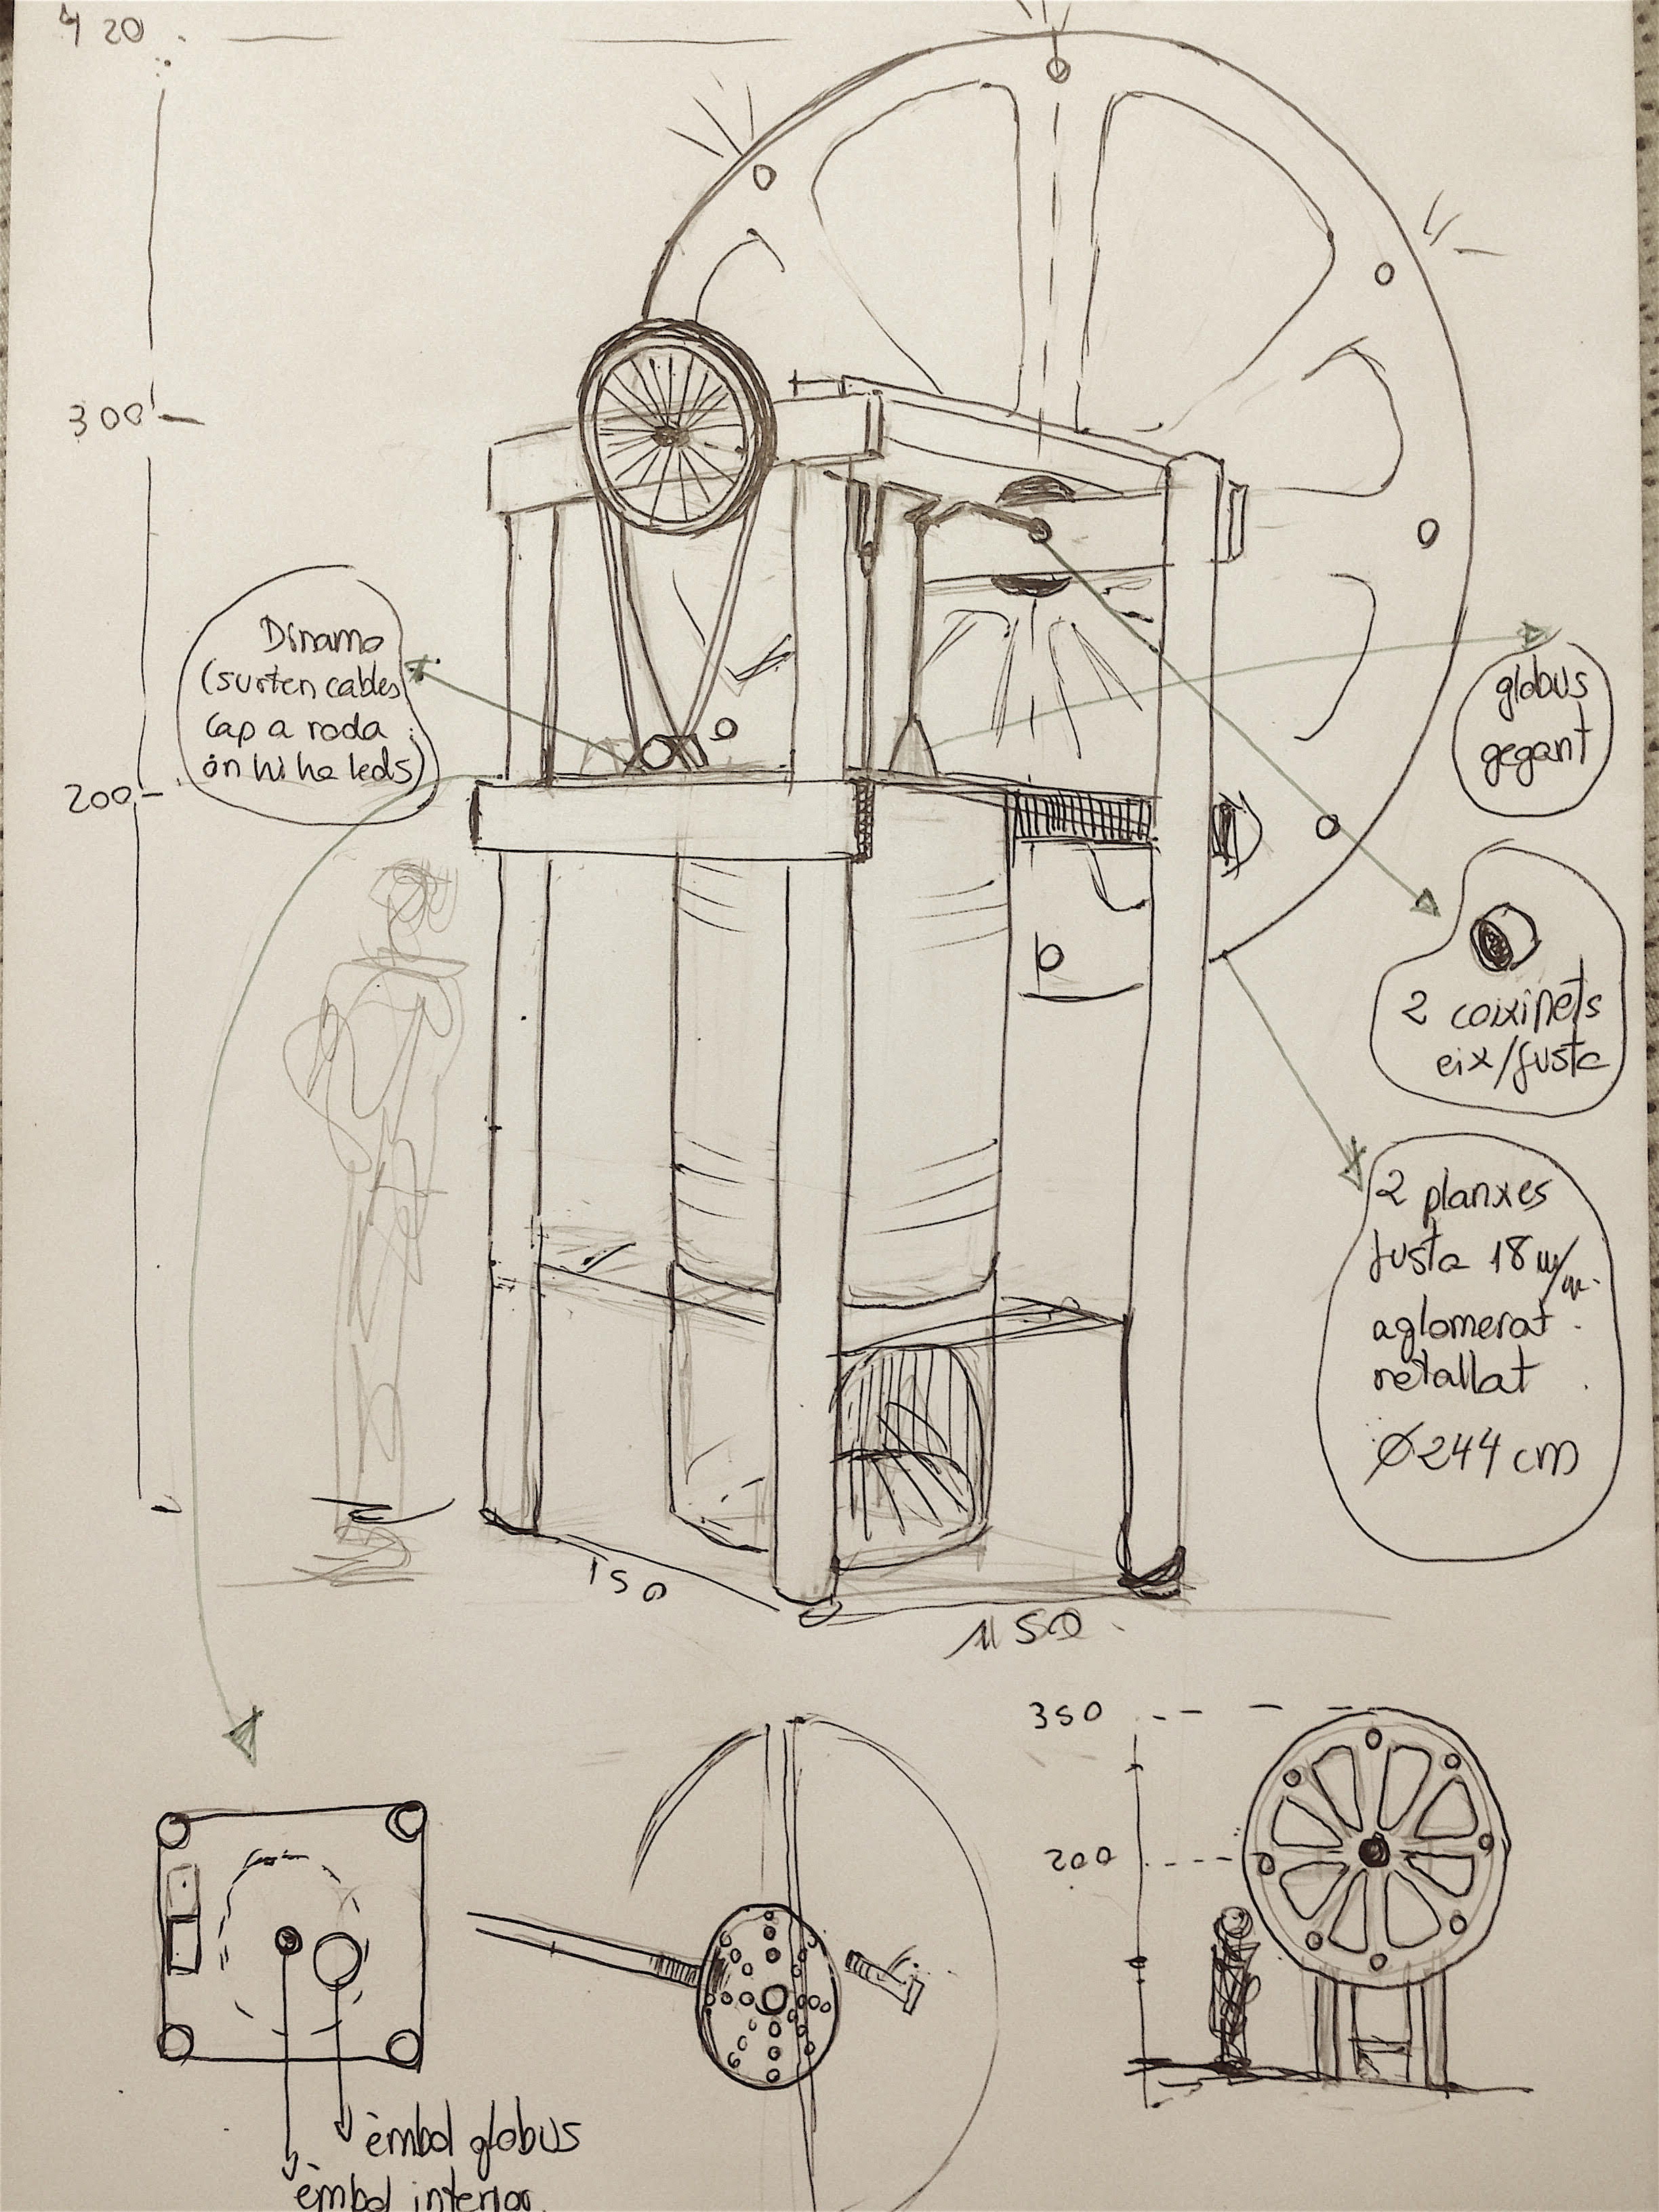 420
300
Dinamo
(surten cables
cap a roda
on hi ha leds)
200
globus
gegant
2 coixinets
eix/fusta
2 planxes
fusta 18 m/m.
aglomerat
retallat
Ø244 cm
150
150
350
200
èmbol globus
èmbol interior